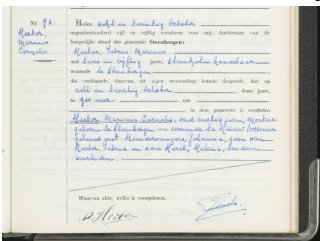 Nr 94
Heden acht en twintig October
Hector,
negentienhonderd vijf en vijftig verscheen voor mij, Ambtenaar van de
Marinus
burgerlijke stand der gemeente Steenbergen:
Cornelis
Hector, Petrus Marinus
oud twee en vijftig jaren, steenkolen handelaar
wonende te Steenbergen
die verklaarde, daarvan uit eigen wetenschap kennis dragende, dat op
acht en twintig October dezes jaars,
te zes uur
in deze gemeente is overleden
Hector Marinus Cornelis, oud veertig jaren, monteur
geboren te Steenbergen en wonende te
gehuwd met Johanna, zoon van
Hector, Petrus en van Helena, beiden
overleden
Waarvan akte, welke is voorgelezen.
P. Hector